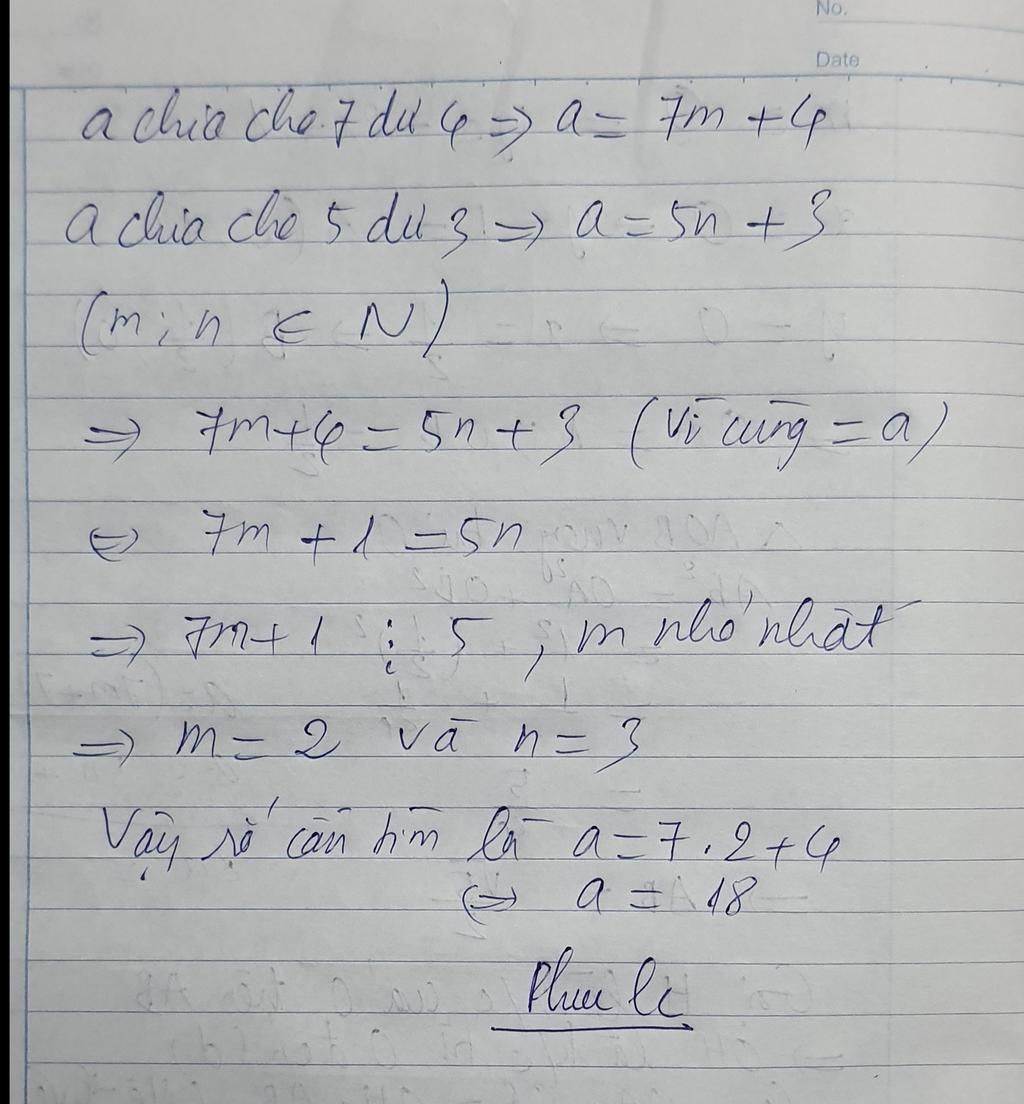 No.
Date
a chia cho 7 dư 4 => a = 7m + 4
a chia cho 5 dư 3 => a = 5n + 3
(m; n ∈ N)
=> 7m + 4 = 5n + 3 (vì cùng = a)
<=> 7m + 1 = 5n
=> 7m + 1 ⋮ 5, m nhỏ nhất
=> m = 2 và n = 3
Vậy số cần tìm là a = 7.2 + 4
<=> a = 18